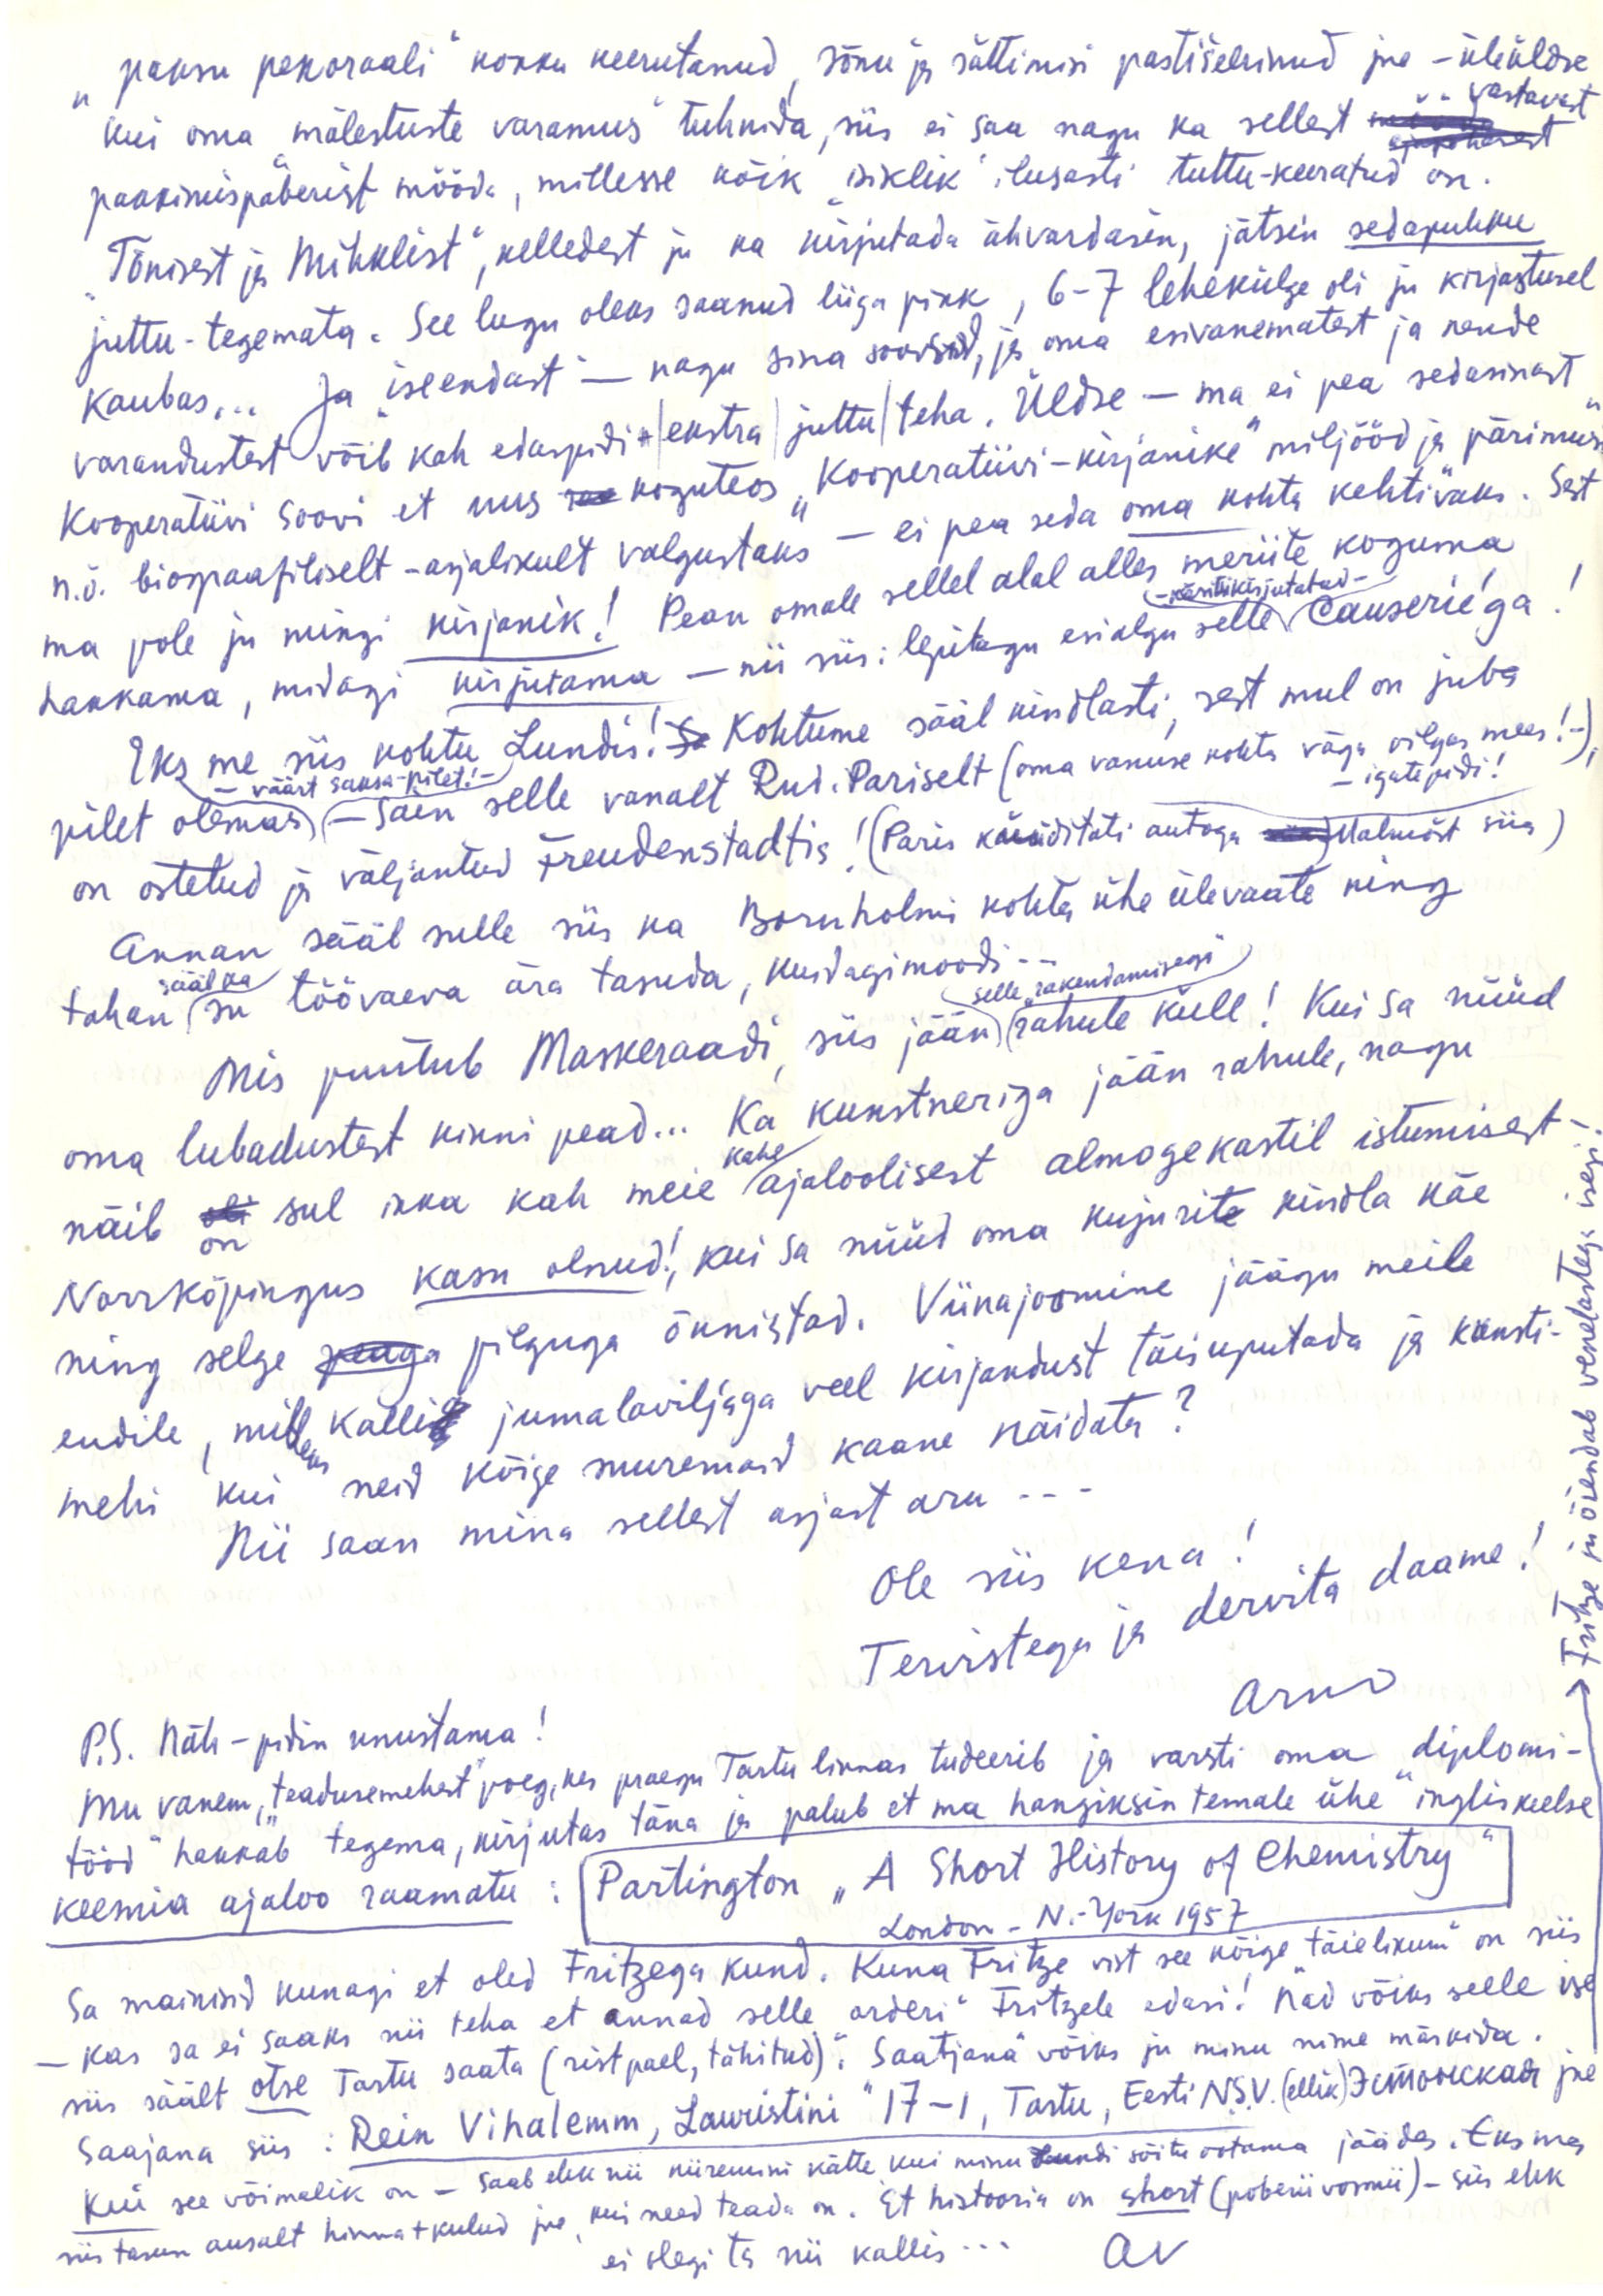 „paksu pekoraali“ kokku keerutanud, sõnu ja sättimisi pastišeerinud jne – üleüldse
kui oma „mälestuste varamus“ tuhnida, siis ei saa nagu ka sellest vastavast
pakkimispaberist mööda, millesse kõik „isiklik“ ilusasti tuttu-keeratud on.
„Tõnisest ja Mihklist“, kelledest ju ka kirjutada ähvardasin, jätsin sedapuhku
juttu-tegemata. See lugu oleks saanud liiga pikk, 6–7 lehekülge oli ju kirjastusel
kaubas... Ja „iseendast“ – nagu sina soovisid, ja oma esivanematest ja nende
varandustest võib kah edaspidi ekstra juttu teha. Üldse – ma ei pea sedasinast
Kooperatiivi soovi et uus koguteos „Kooperatiivi-kirjanike“ miljööd ja pärimusi
n.ö. biograafiliselt-asjalikult valgustaks – ei pea seda oma kohta kehtivaks. Sest
ma pole ju mingi kirjanik! Pean omale sellel alal alles meriite koguma
hakkama, midagi kirjutama – nii siis: lepitagu esialgu selle –käsitsikirjutatud– Causerie'ga!
Eks me siis kohtu Lundis! Kohtume sääl kindlasti, sest mul on juba
pilet olemas – väärt saksa-pilet! – – Sain selle vanalt Rud. Pariselt (oma vanuse kohta väga vilgas mees! –),
– igatepidi!
on ostetud ja väljantud Freudenstadtis! (Paris küüditati autoga Malmöst siia)
Annan sääl sulle siis ka Bornholmi kohta ühe ülevaate ning
tahan sääl ka su töövaeva ära tasuda, kuidagimoodi...
Mis puutub Maskeraadi, siis jään selle „rakendamisega“ rahule küll! Kui sa nüüd
oma lubadustest kinni pead... Ka kunstneriga jään rahule, nagu
näib on sul ikka kah meie kahe ajaloolisest almogekastil istumisest
Norrköpingus kasu olnud!, kui sa nüüd oma kujurite kindla käe
ning selge pilguga õnnistad. Viinajoomine jäägu meile
endile, milleks kalli jumalaviljaga veel kirjandust täisuputada ja kunsti-
mehi kui neid kõige suuremaid kaane näidata?
Nii saan mina sellest asjast aru ---
Ole siis kena!
Tervistega ja dervita daame!
Arno
P.S. Näh – pidin unustama!
Mu vanem, „teadusemehest“ poeg, kes praegu Tartu linnas tudeerib ja varsti oma „diplomi-
tööd“ hakkab tegema, kirjutas täna ja palub et ma hangiksin temale ühe ingliskeelse
keemia ajaloo raamatu: Partington „A Short History of Chemistry“
London – N.-York 1957
Sa mainisid kunagi et oled Fritzega kund. Kuna Fritze vist see kõige „täielikum“ on siis
– kas sa ei saaks nii teha et annad selle „orderi“ Fritzele edasi! Nad võiks selle ise
siis säält otse Tartu saata (ristpael, tähitud). „Saatjana“ võiks ju minu nime märkida.
Saajana siis: Rein Vihalemm, Lauristini 17–1, Tartu, Eesti N.S.V. (ellik) Эстонская jne
Kui see võimalik on – saab ehk nii kiiremini kätte kui minu Lundi sõitu ootama jäädes. Eks ma
siis tasun ausalt hinna + kulud jne, kui need teada on. Et histooria on short – siis ehk
ei olegi ta nii kallis...
AV
→ Fritze ju õiendab venelastega isegi!